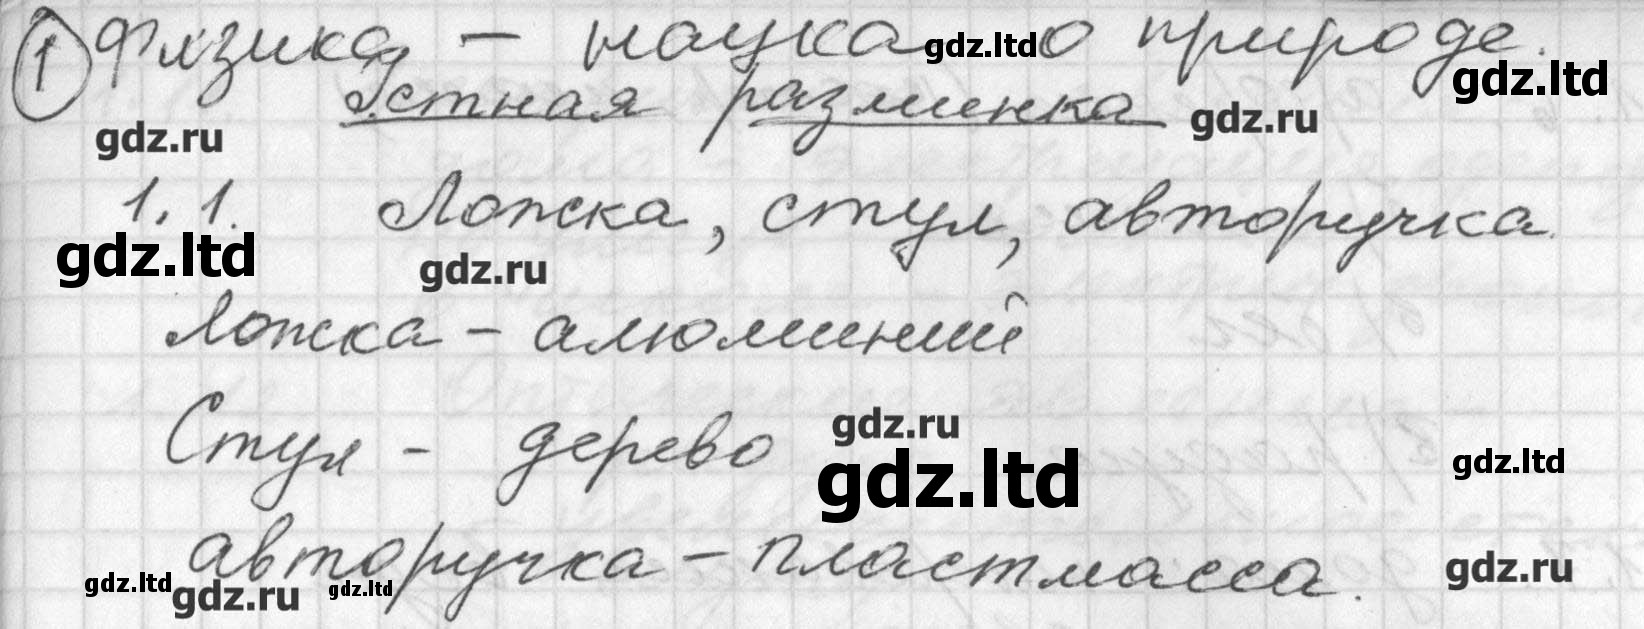 ① Физика – наука о природе.
gdz.ltd
gdz.ltd
Устная разминка
gdz.ru
gdz.ru
1.1. Ложка, стул, авторучка.
gdz.ltd
gdz.ru
Ложка – алюминий
Стул – дерево
gdz.ru
gdz.ltd
gdz.ltd
авторучка – пластмасса.
gdz.ltd
gdz.ru
gdz.ltd
gdz.ru